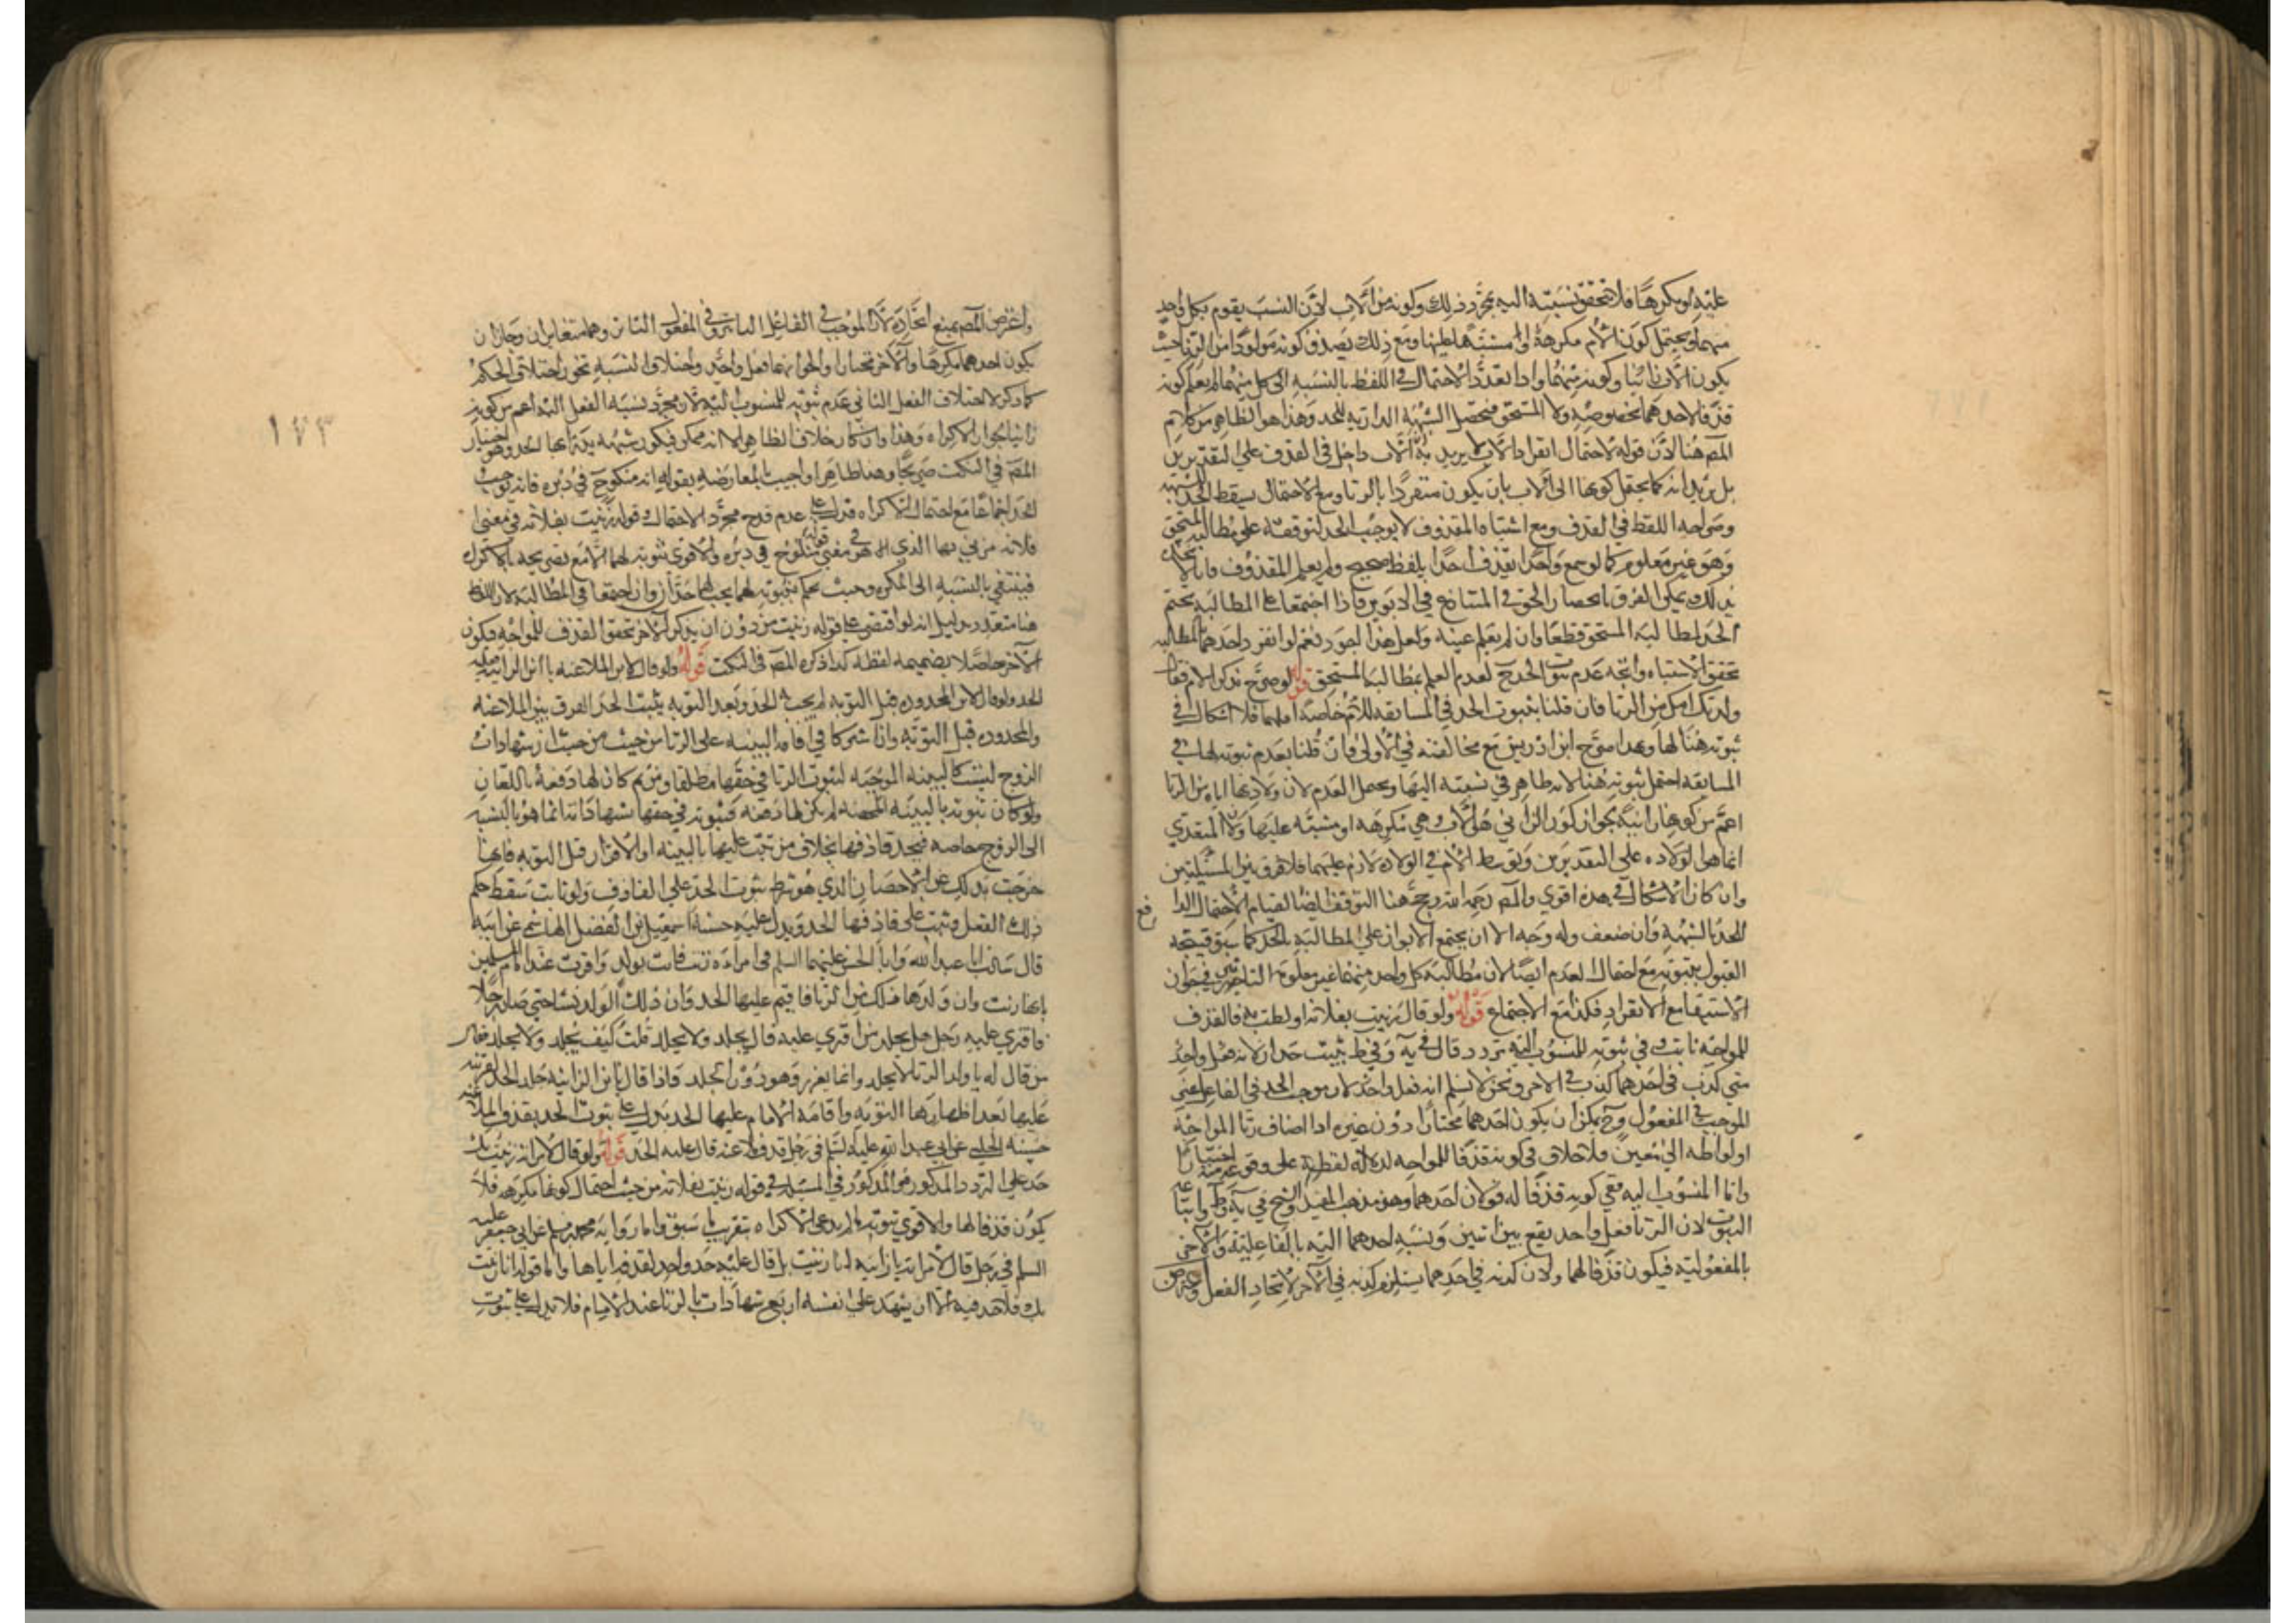 عليه او مكرها فلا تتحقق نسبته اليه بمجرد ذلك وكونه من الاب لان النسب يقوم بكل واحد
منهما ويحتمل كون الام مكرهة او مشتبها عليها ومع ذلك يصدق كونه مولودا من الزنا حيث
يكون الاب زانيا وكونه منهما واذا تعدد الاحتمال في اللفظ بالنسبه الى كل منهما لم يعلم كونه
قذفا لاحدهما بخصوصه ولا المستحق فتحصل الشبهه الدارئه للحد وهذا هو الظاهر من كلام
المص هنا لان قوله لاحتمال انفراد الاب يريد به ان الاب داخل في القذف على التقديرين
بل يريد انه كما يحتمل كونها الى الاب بان يكون متفردا بالزنا ومع الاحتمال يسقط الحد للشبهه
وصراحه اللفظ في القذف ومع اشتباه المقذوف لا يوجب الحد لتوقفه على مطالبه المستحق
وهو غير معلوم كما لو سمع واحدا يقذف احدا بلفظ صحيح ولم يعلم المقذوف فانا لا نحكم
بذلك ويمكن الفرق بانحصار الحق في المتنازع في الابوين فاذا اجتمعا على المطالبة تحتم
الحد لمطالبة المستحق قطعا وان لم يعلم عينه ولعل هذا اجود نعم لو انفرد احدهما بالمطالبه
تحقق الاشتباه واتجه عدم ثبوت الحد ح لعدم العلم بمطالبة المستحق قوله لو صرح بذكر الام فقال
ولدتك امك من الزنا فان قلنا بثبوت الحد في السابقه للام خاصة او لهما فلا اشكال في
ثبوته هنا لها وبهذا صرح ابن ادريس مع مخالفته في الاولى وان قلنا بعدم ثبوته لها في
السابقه احتمل ثبوته هنا لانه ظاهر في نسبته اليها ويحتمل العدم لان ولادتها اياه من الزنا
اعم من كونها زانية لجواز كون الزاني هو الاب وهي مكرهه او مشتبه عليها ولان المتعدي
انما هي الولاده على التقديرين وتوسط الام في الولاده لازم عليهما فلا فرق بين المسئلتين
وان كان الاشكال في هذه اقوى والمص رحمه الله رجح هنا التوقف ايضا لقيام الاحتمال الدا
فع
للحد بالشبهة وان ضعف وله وجه الا ان يجتمع الابوان على المطالبة بالحد كما سبق فيتجه
القبول بثبوته مع احتمال العدم ايضا لان مطالبة كل واحد منهما غير معلومة التاثير فيجوز ان
الاستيفا مع الانفراد فكذا مع الاجتماع قوله ولو قال زنيت بفلانه او لطت به فالقذف
للمواجه ثابت وفي ثبوته للمنسوب اليه تردد قال في يه وفي ط يثبت حدان لانه فعل واحد
متى كذب في احدهما كذب في الاخر ونحن لا نسلم انه فعل واحد لان موجب الحد في الفاعل غير
الموجب في المفعول وح يمكن ان يكون احدهما مختارا دون غيره اذا اضاف زنا المواجه
او لواطه الى معين فلا خلاف في كونه قذفا للمواجه لدلالة لفظه على وقوعه منه اختيارا
واما المنسوب اليه ففي كونه قذفا له قولان احدهما وهو مذهب المفيد والشيخ في يه وط واتباعه
الثبوت لان الزنا فعل واحد يقع بين اثنين ونسبه احدهما اليه بالفاعلية والاخر
بالمفعولية فيكون قذفا لهما ولان كذبه في احدهما يستلزم كذبه في الاخر لاتحاد الفعل واعترض
واعترض المص بمنع اتحاده لان الموجب في الفاعل التاثير وفي المفعول التاثر وهما متغايران وجاز ان
يكون احدهما مكرها والاخر مختارا والجواب انهما فعل واحد واختلاف النسبه تجوز اختلاف الحكم
كما ذكر لا اختلاف الفعل الثاني عدم ثبوته للمنسوب اليه لان مجرد نسبة الفعل اليه اعم من كونه
زانيا لجواز الاكراه وهذا وان كان خلاف الظاهر الا انه ممكن فيكون شبهه يدرا بها الحد وهو اختيار
المص في النكت صريحا وهنا ظاهرا واجيب بالمعارضه بقوله انه منكوح في دبره فانه يوجب
الحد اجماعا مع احتمال الاكراه فدل على عدم قدح مجرد الاحتمال وقوله زنيت بفلانه في معنى
فلانه مزني بها الذي هو في معنى فلان منكوح في دبره والاقوى ثبوته لهما الا مع تصريحه بالاكراه
فينتفي بالنسبه الى المكره وحيث يحكم بثبوته لهما يجب لهما حدان وان اجتمعا في المطالبة لان اللفظ
هنا متعدد بدليل انه لو اقتصر على قوله زنيت من دون ان يذكر الاخر تحقق القذف للمواجه فيكون
الاخر حاصلا بضميمه لفظه كذا ذكره المص في النكت قوله ولو قال لابن الملاعنه يا ابن الزانيه فعليه
الحد ولو قال لابن المحدوده قبل التوبه لم يجب الحد وبعد التوبه يثبت الحد الفرق بين الملاعنه
والمحدوده قبل التوبه وان اشتركا في اقامه البينه على الزنا من حيث من حيث ان شهادات
الزوج ليست كالبينه الموجبه لثبوت الزنا في حقها مطلقا ومن ثم كان لها دفعه باللعان
ولو كان ثبوته بالبينه المحضه لم يكن لها دفعه فثبوته في حقها بشهاداته انما هو بالنسبه
الى الزوج خاصه فيحد قاذفها بخلاف من ثبت عليها بالبينه او الاقرار قبل التوبه فانها
خرجت بذلك عن الاحصان الذي هو شرط ثبوت الحد على القاذف ولو تابت سقط حكم
ذلك الفعل وثبت على قاذفها الحد ويدل عليه حسنة اسمعيل بن الفضل الهاشمي عن ابيه
قال سالت ابا عبد الله وابا الحسن عليهما السلم في امراءة زنت فاتت بولد واقرت عند امام المسلمين
بانها زنت وان ولدها ذلك من الزنا فاقيم عليها الحد وان ذلك الولد نشا حتى صار رجلا
فافترى عليه رجل هل يجلد من افترى عليه قال يجلد ولا يجلد قلت كيف يجلد ولا يجلد فقال
من قال له يا ولد الزنا لا يجلد وانما يعزر وهو دون الجلد واذا قال يا ابن الزانيه جلد الحد لفريته
عليها بعد اظهارها التوبه واقامة الامام عليها الحد ويدل على ثبوت الحد بقذف الملاعنه
حسنه الحلبي عن ابي عبد الله عليه السلم في رجل قذف ملاعنه قال عليه الحد قوله ولو قال لامراته زنيت بك
حد على التردد المذكور هو المذكور في المسئله في قوله زنيت بفلانه من حيث احتمال كونها مكرهه فلا
يكون قذفا لها والاقوى ثبوته ما لم يدع الاكراه بتقريب ما سبق واما رواية محمد بن مسلم عن ابي جعفر عليه
السلم في رجل قال لامراته يا زانيه انا زنيت بك قال عليه حد واحد لقذفه اياها واما قوله انا زنيت
بك فلا حد فيه الا ان يشهد على نفسه اربع شهادات بالزنا عند الامام فلا تدل على ثبوت
١٧٣